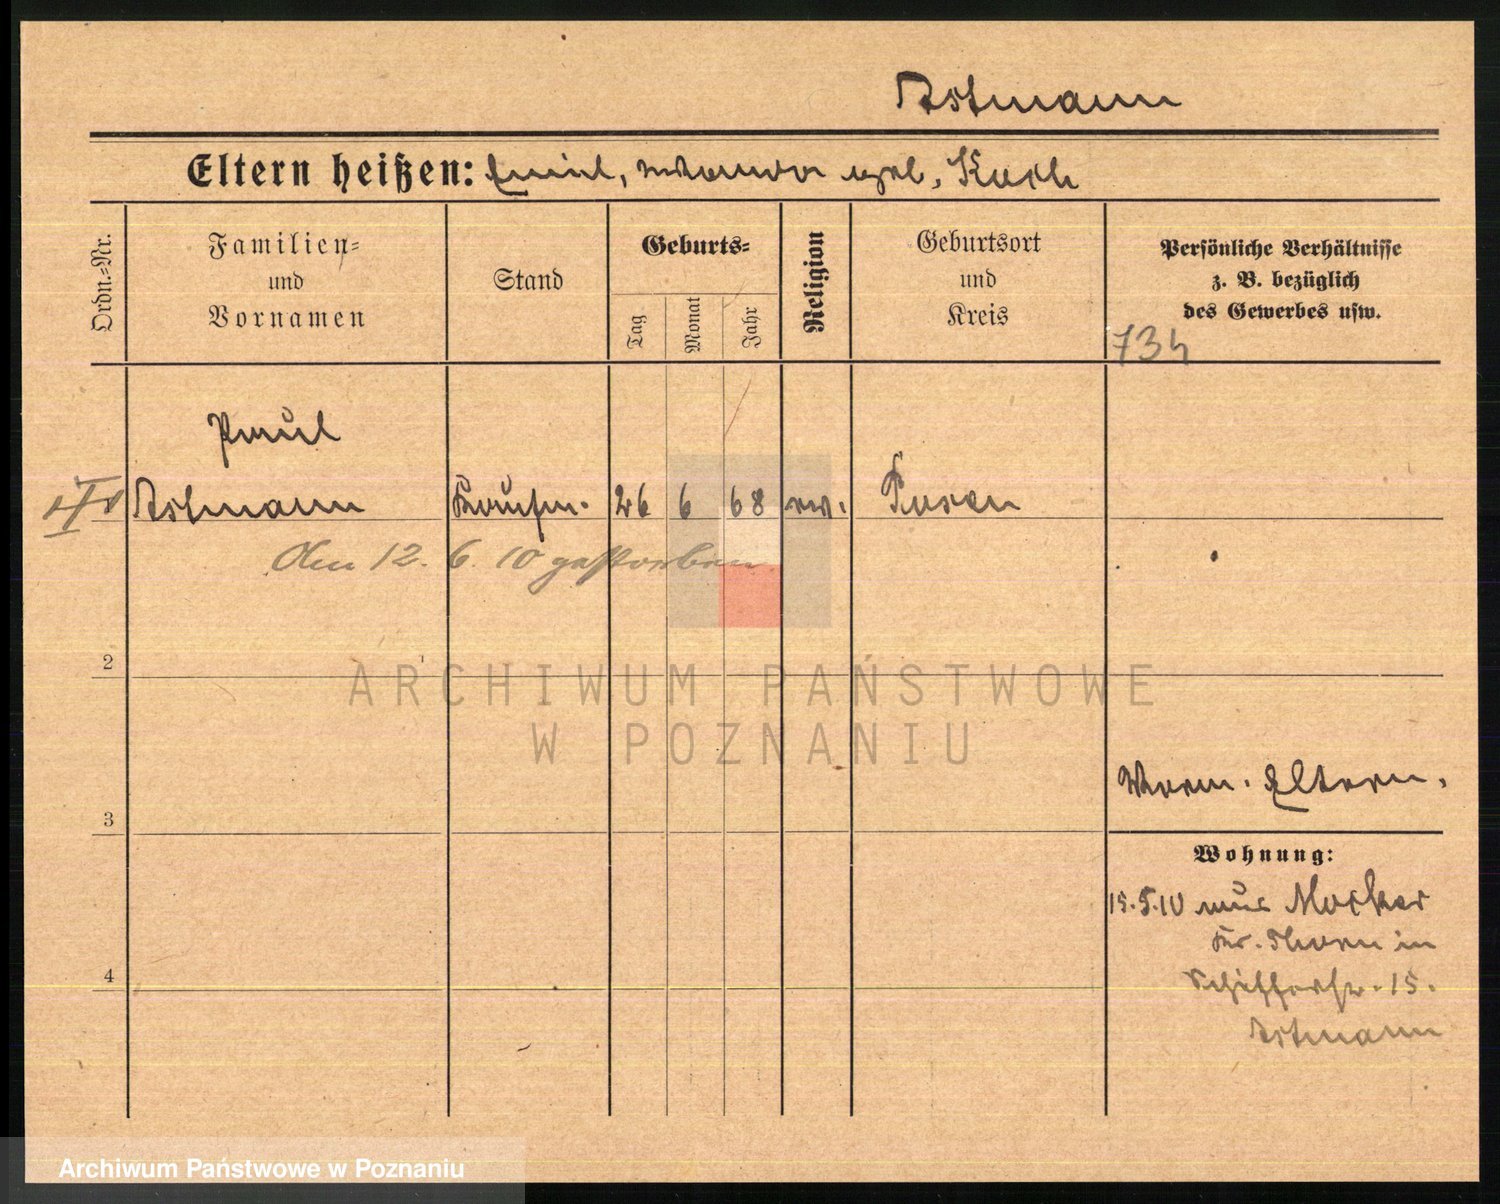 Astmann
Eltern heißen: Emil, geb. Koch
Ordn.-Nr.
Familien-
und
Vornamen
Stand
Geburts-
Tag
Monat
Jahr
Religion
Geburtsort
und
Kreis
Persönliche Verhältnisse
z. B. bezüglich
des Gewerbes usw.
734
Paul
Astmann Kaufm. 26 6 68 ev. Posen
Den 12. 6. 10 gestorben
2
3
4
Verm. Eltern.
Wohnung:
15.5.10 aus Mocker
Kr. Thorn in
Schifferstr. 15.
Astmann
ARCHIWUM PAŃSTWOWE
W POZNANIU
Archiwum Państwowe w Poznaniu